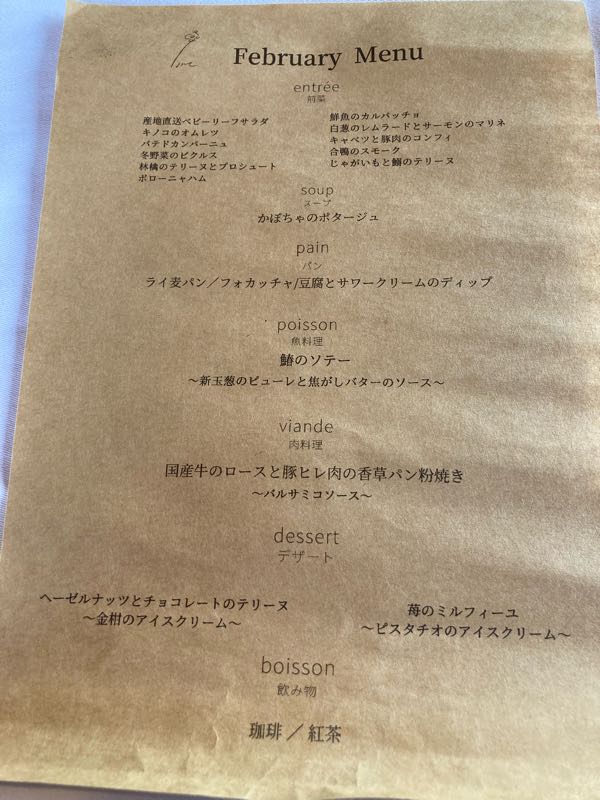 February Menu
entrée
前菜
産地直送ベビーリーフサラダ
キノコのオムレツ
パテドカンパーニュ
冬野菜のピクルス
林檎のテリーヌとプロシュート
ボローニャハム
鮮魚のカルパッチョ
白葱のレムラードとサーモンのマリネ
キャベツと豚肉のコンフィ
合鴨のスモーク
じゃがいもと鰯のテリーヌ
soup
スープ
かぼちゃのポタージュ
pain
パン
ライ麦パン／フォカッチャ/豆腐とサワークリームのディップ
poisson
魚料理
鰆のソテー
～新玉葱のピューレと焦がしバターのソース～
viande
肉料理
国産牛のロースと豚ヒレ肉の香草パン粉焼き
～バルサミコソース～
dessert
デザート
ヘーゼルナッツとチョコレートのテリーヌ
～金柑のアイスクリーム～
苺のミルフィーユ
～ピスタチオのアイスクリーム～
boisson
飲み物
珈琲／紅茶